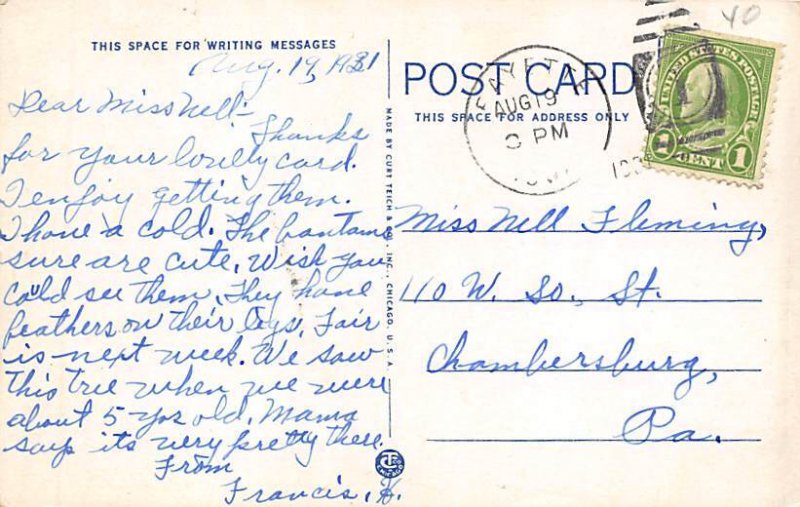 40
THIS SPACE FOR WRITING MESSAGES
Aug. 19, 1931
Dear Miss Nell:-
Thanks
for your lovely card.
I enjoy getting them.
I have a cold. The bantams
sure are cute. Wish you
could see them. They have
feathers on their legs. Fair
is next week. We saw
this tree when we were
about 5 yrs old. Mama
says its very pretty there.
From
Francis, H.
MADE BY CURT TEICH & CO., INC., CHICAGO, U.S.A.
CT
CHICAGO
POST CARD
THIS SPACE FOR ADDRESS ONLY
FAYETTE
AUG 19
PM
IOWA
UNITED STATES POSTAGE
1 CENT 1
Miss Nell Fleming,
110 W. So., St.
Chambersburg,
Pa.